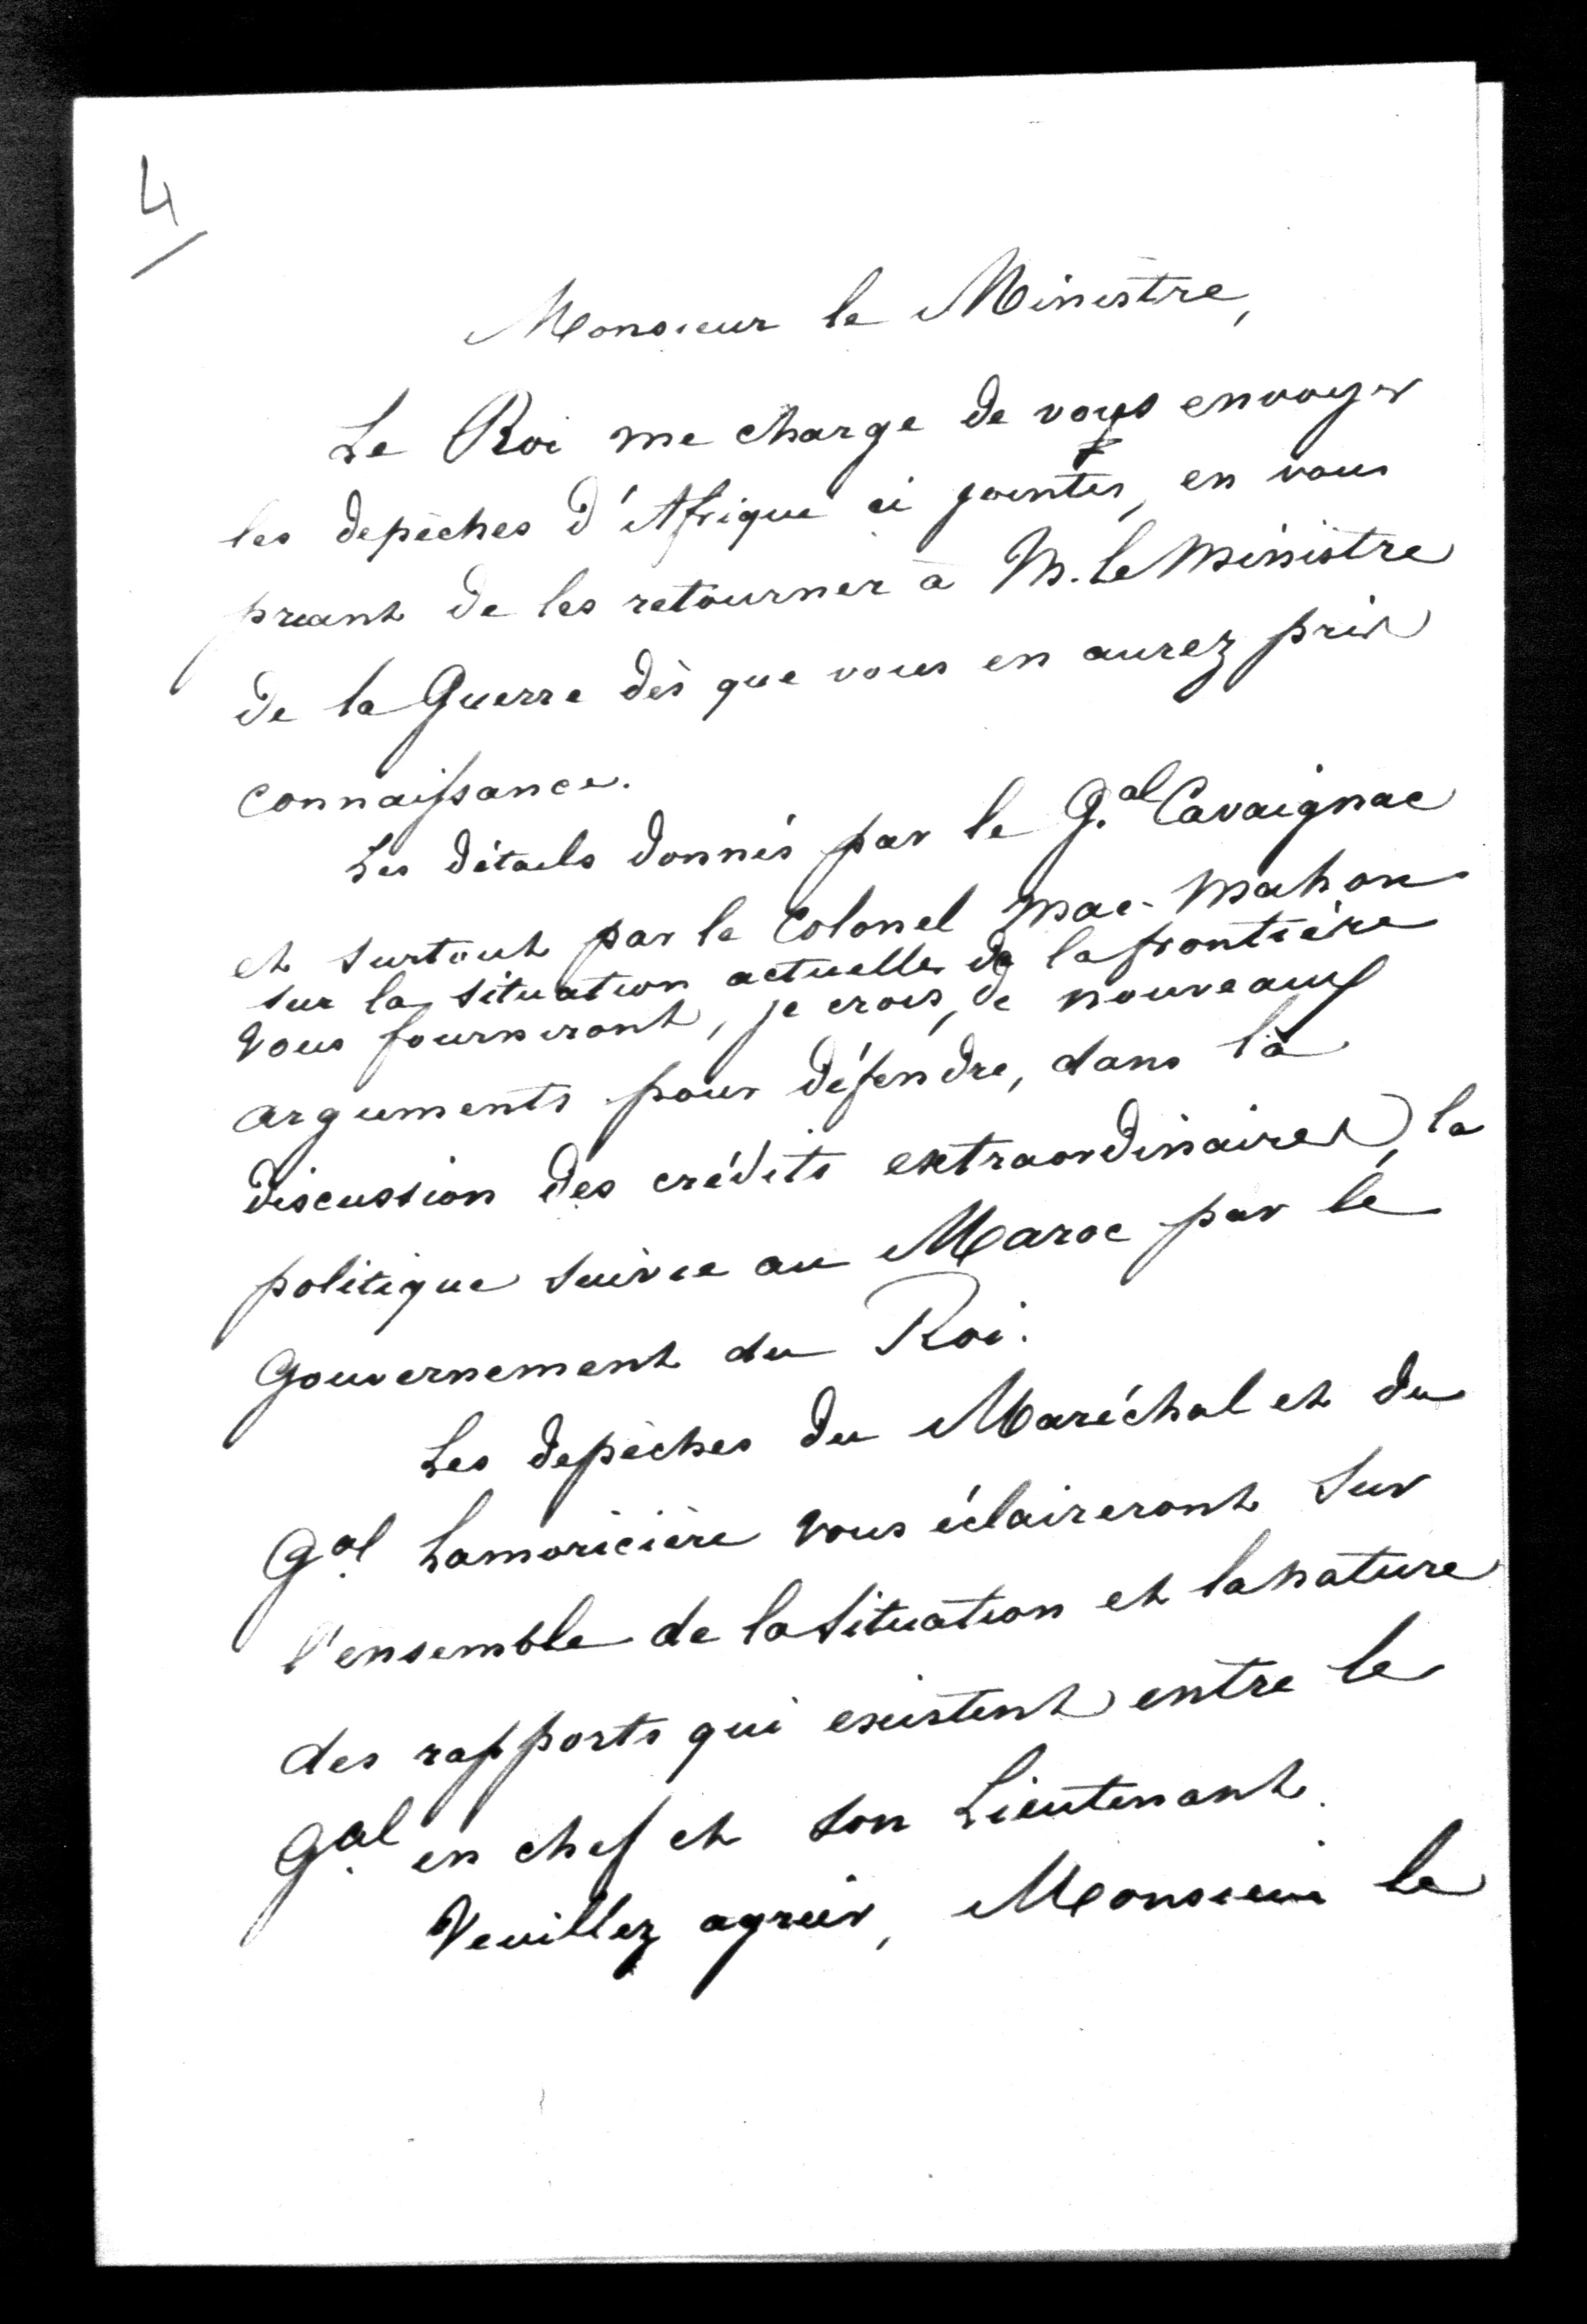 4
Monsieur le Ministre,
Le Roi me charge de vous envoyer
les depêches d'Afrique ci jointes, en vous
priant de les retourner à M. le Ministre
de la Guerre dès que vous en aurez pris
connaissance.
Les détails donnés par le G.al Cavaignac
et surtout par le Colonel Mac-Mahon
sur la situation actuelle de la frontière
vous fourniront, je crois, de nouveaux
arguments pour défendre, dans la
discussion des crédits extraordinaires, la
politique suivie au Maroc par le
Gouvernement du Roi.
Les depêches du Maréchal et du
G.al Lamoricière vous éclaireront sur
l'ensemble de la situation et la nature
des rapports qui existent entre le
G.al en chef et son Lieutenant.
Veuillez agréer, Monsieur le